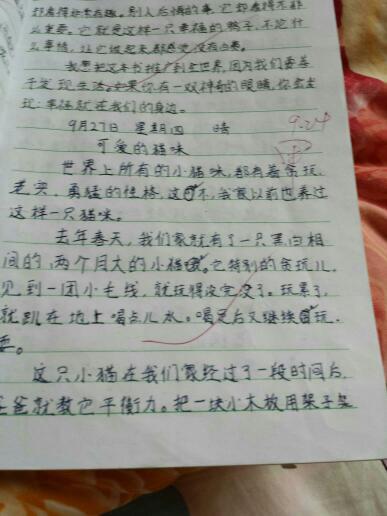 却看得如末有趣。别人后悔的事,它却看得不那
么重要。它就是这样一只幸福的鸭子,不论什
么事情,让它做起来都感觉没有白费。
我想把这本书推广到全世界,因为我们要善
于发现生活。如果你有一双神奇的眼睛,你会发
现:幸福就在我们的身边。
9月27日 星期四 晴
9.24
可爱的猫咪
世界上所有的小猫咪,都有着贪玩、
老实、勇猛的性格,这不,我家以前也养过
这样一只猫咪。
去年春天,我们家就有了一只黑白相
间的,两个月大的小猫。它特别的贪玩儿,
见到一团小毛线,就玩得没完没了。玩累了,
就趴在地上喝点儿水。喝足后又继续玩
耍。
这只小猫在我们家经过了一段时间后,
爸爸就教它平衡力。把一块小木板用架子架